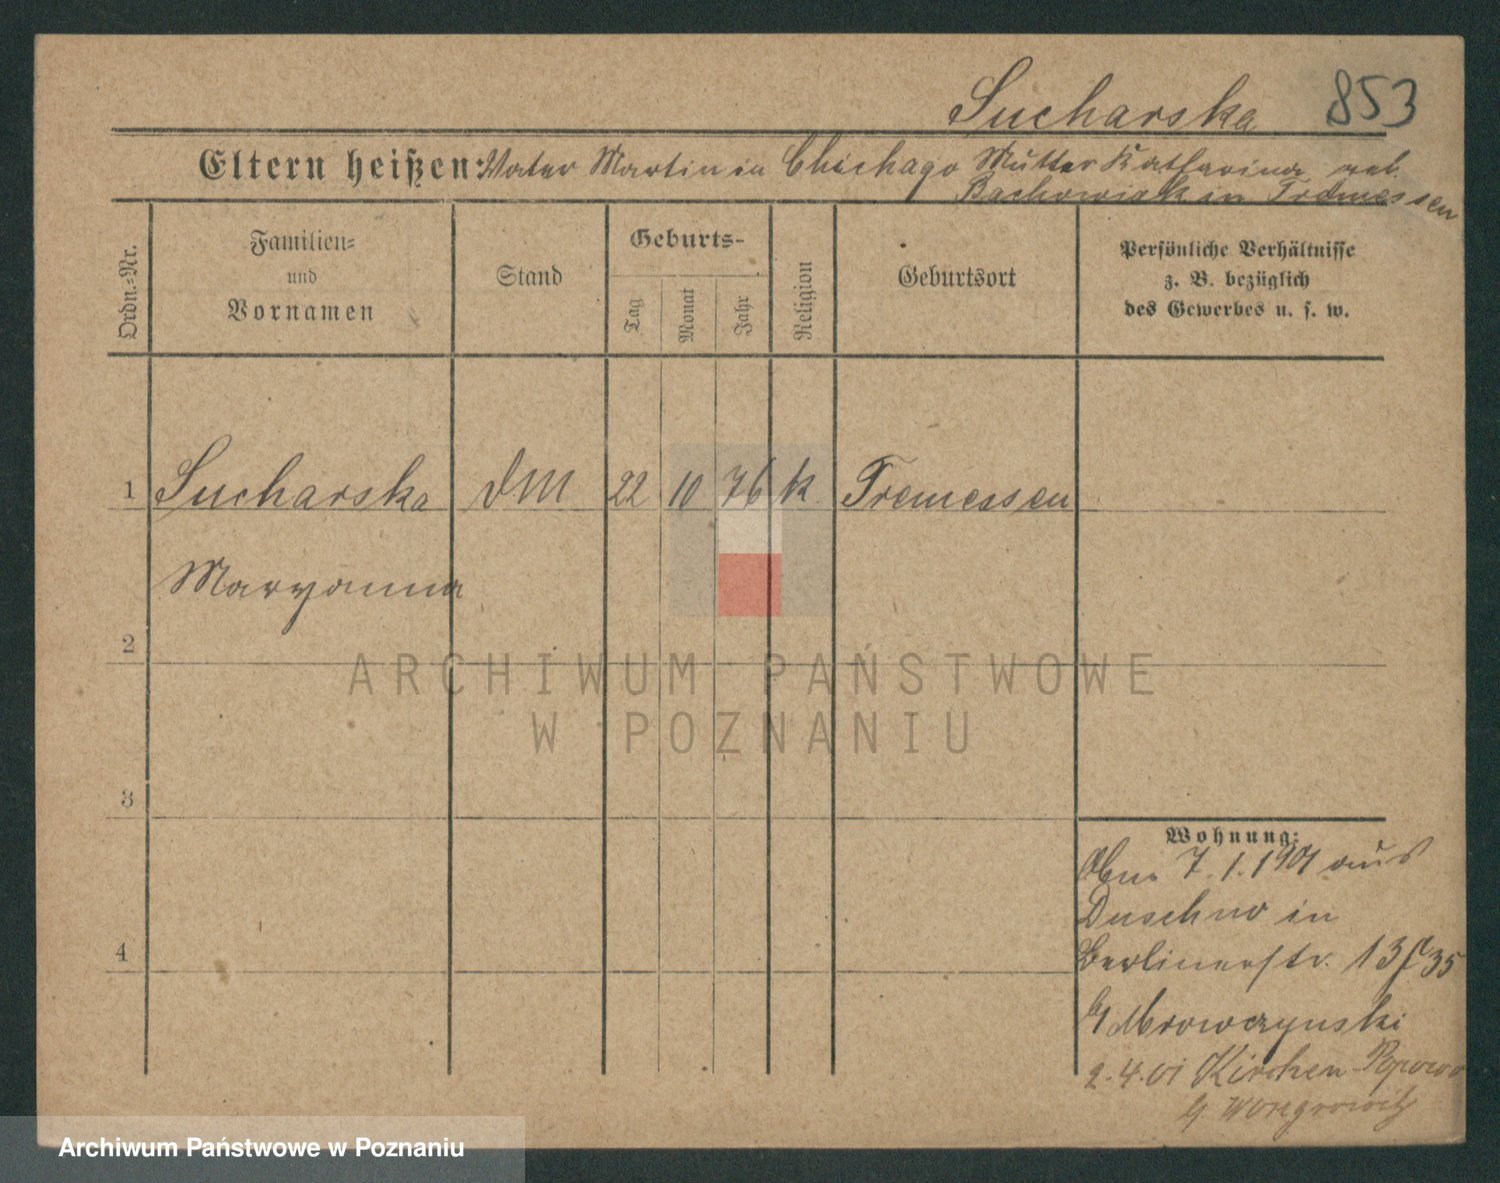 Sucharska 853
Eltern heißen: Vater Martin in Chichago Mutter Katharina geb.
Bachowiak in Tremessen
Ordn.-Nr.
Familien-
und
Vornamen
Stand
Geburts-
Tag
Monat
Jahr
Religion
Geburtsort
Persönliche Verhältnisse
z. B. bezüglich
des Gewerbes u. s. w.
1 Sucharska DM 22 10 76 k Tremessen
Maryanna
2
ARCHIWUM PAŃSTWOWE
W POZNANIU
3
4
Wohnung:
7.1.1901 aus
Duschno in
Berlinerstr. 13
b/ Mrowczynski
2.4.01 Kirchen-Popowo
Wongrowitz
Archiwum Państwowe w Poznaniu